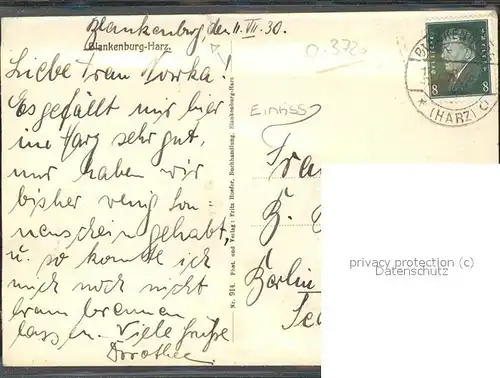 Blankenburg, den 11. VII. 30.
Blankenburg-Harz.
Liebe Frau !
Es gefällt mir hier
im Harz sehr gut,
nur haben wir
bisher wenig Son-
nenschein gehabt,
u. so konnte ich
mich noch nicht
braun brennen
lassen. Viele Grüße
Dorothee.
Nr. 914. Phot. und Verlag: Fritz Hoeder, Buchhandlung, Blankenburg-Harz
Frau
B.
Berlin
8 8
(HARZ)
privacy protection (c)
Datenschutz